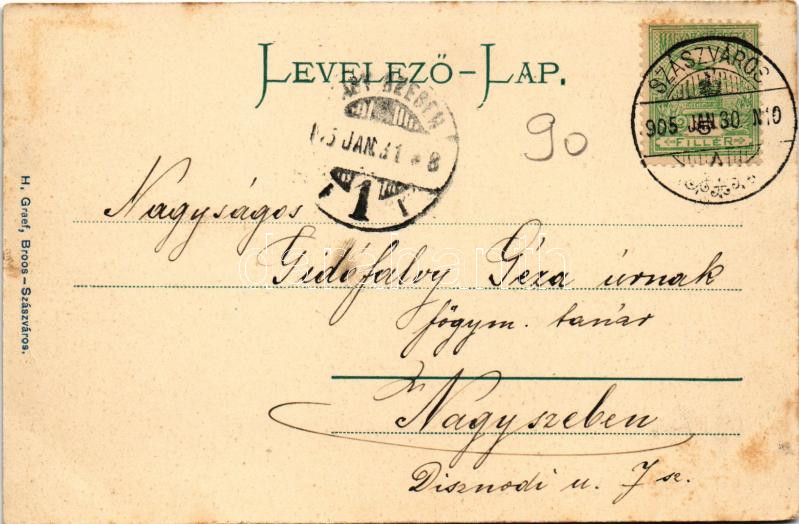 LEVELEZŐ-LAP.
MAGYAR
SZÁSZVÁROS
905 JAN. 30 N10
5
FILLÉR
SZEBEN
905 JAN. 31 * 8
1
90
Nagyságos
Gidófalvy Géza úrnak
főgym. tanár
Nagyszeben
Disznodi u. 7 sz.
H. Graef, Broos-Szászváros.